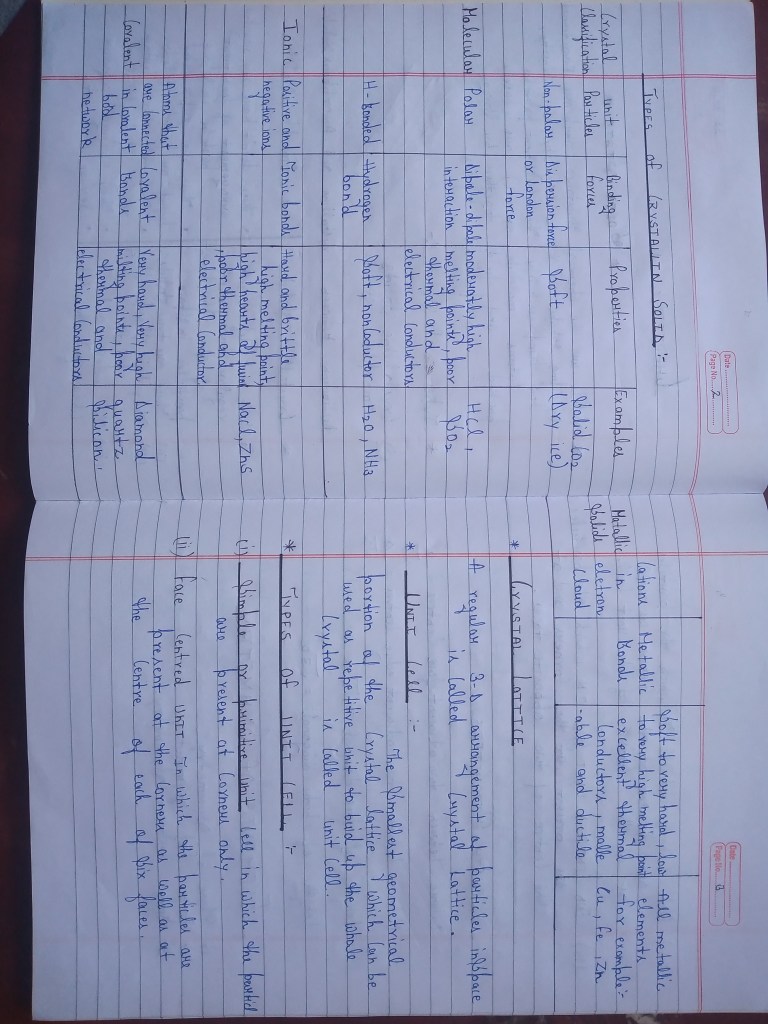 Date
Page No. 2
TYPES of CRYSTALLIN SOLID :-
Crystal Classification | Unit Particles | Binding Forces | Properties | Examples
Non-polar | Dispersion force or London force | Soft | Solid CO2 (Dry ice)
Molecular | Polar | Dipole-dipole interaction | moderatly high melting points, poor thermal and electrical conductors | HCl, SO2
H-bonded | Hydrogen bond | Soft, nonCoductor | H2O, NH3
Ionic | Positive and negative ions | Ionic bonds | Hard and brittle high melting point, high hearts of fusion, poor thermal and electrical Conductor | NaCl, ZnS
Covalent | Atoms that are connected in Covalent bod network | Covalent Bonds | Very hard, Very high melting points, poor thermal and electrical Conductors | Diamond quartz Silicon.
Date
Page No. 3
Metallic Solids | Cations in eletron cloud | Metallic Bonds | Soft to very hard, low to very high melting point excellent thermal Conductors, malle -able and ductile | All metallic elements for example:- Cu, Fe, Zn
* CRYSTAL LATTICE
A regular 3-D arrangement of particles in Space
is Called Crystal Lattice.
* UNIT Cell :-
The Smallest geometrical
portion of the Crystal lattice which Can be
used as repetitive unit to buid up the whole
Crystal is Called unit Cell.
* TYPES OF UNIT CELL :-
(i) Simple or primitive unit Cell in which the particl
are present at Corners only.
(ii) face Centred UNIT In which the particles are
present at the Corners as well as at
the Centre of each of Six faces.